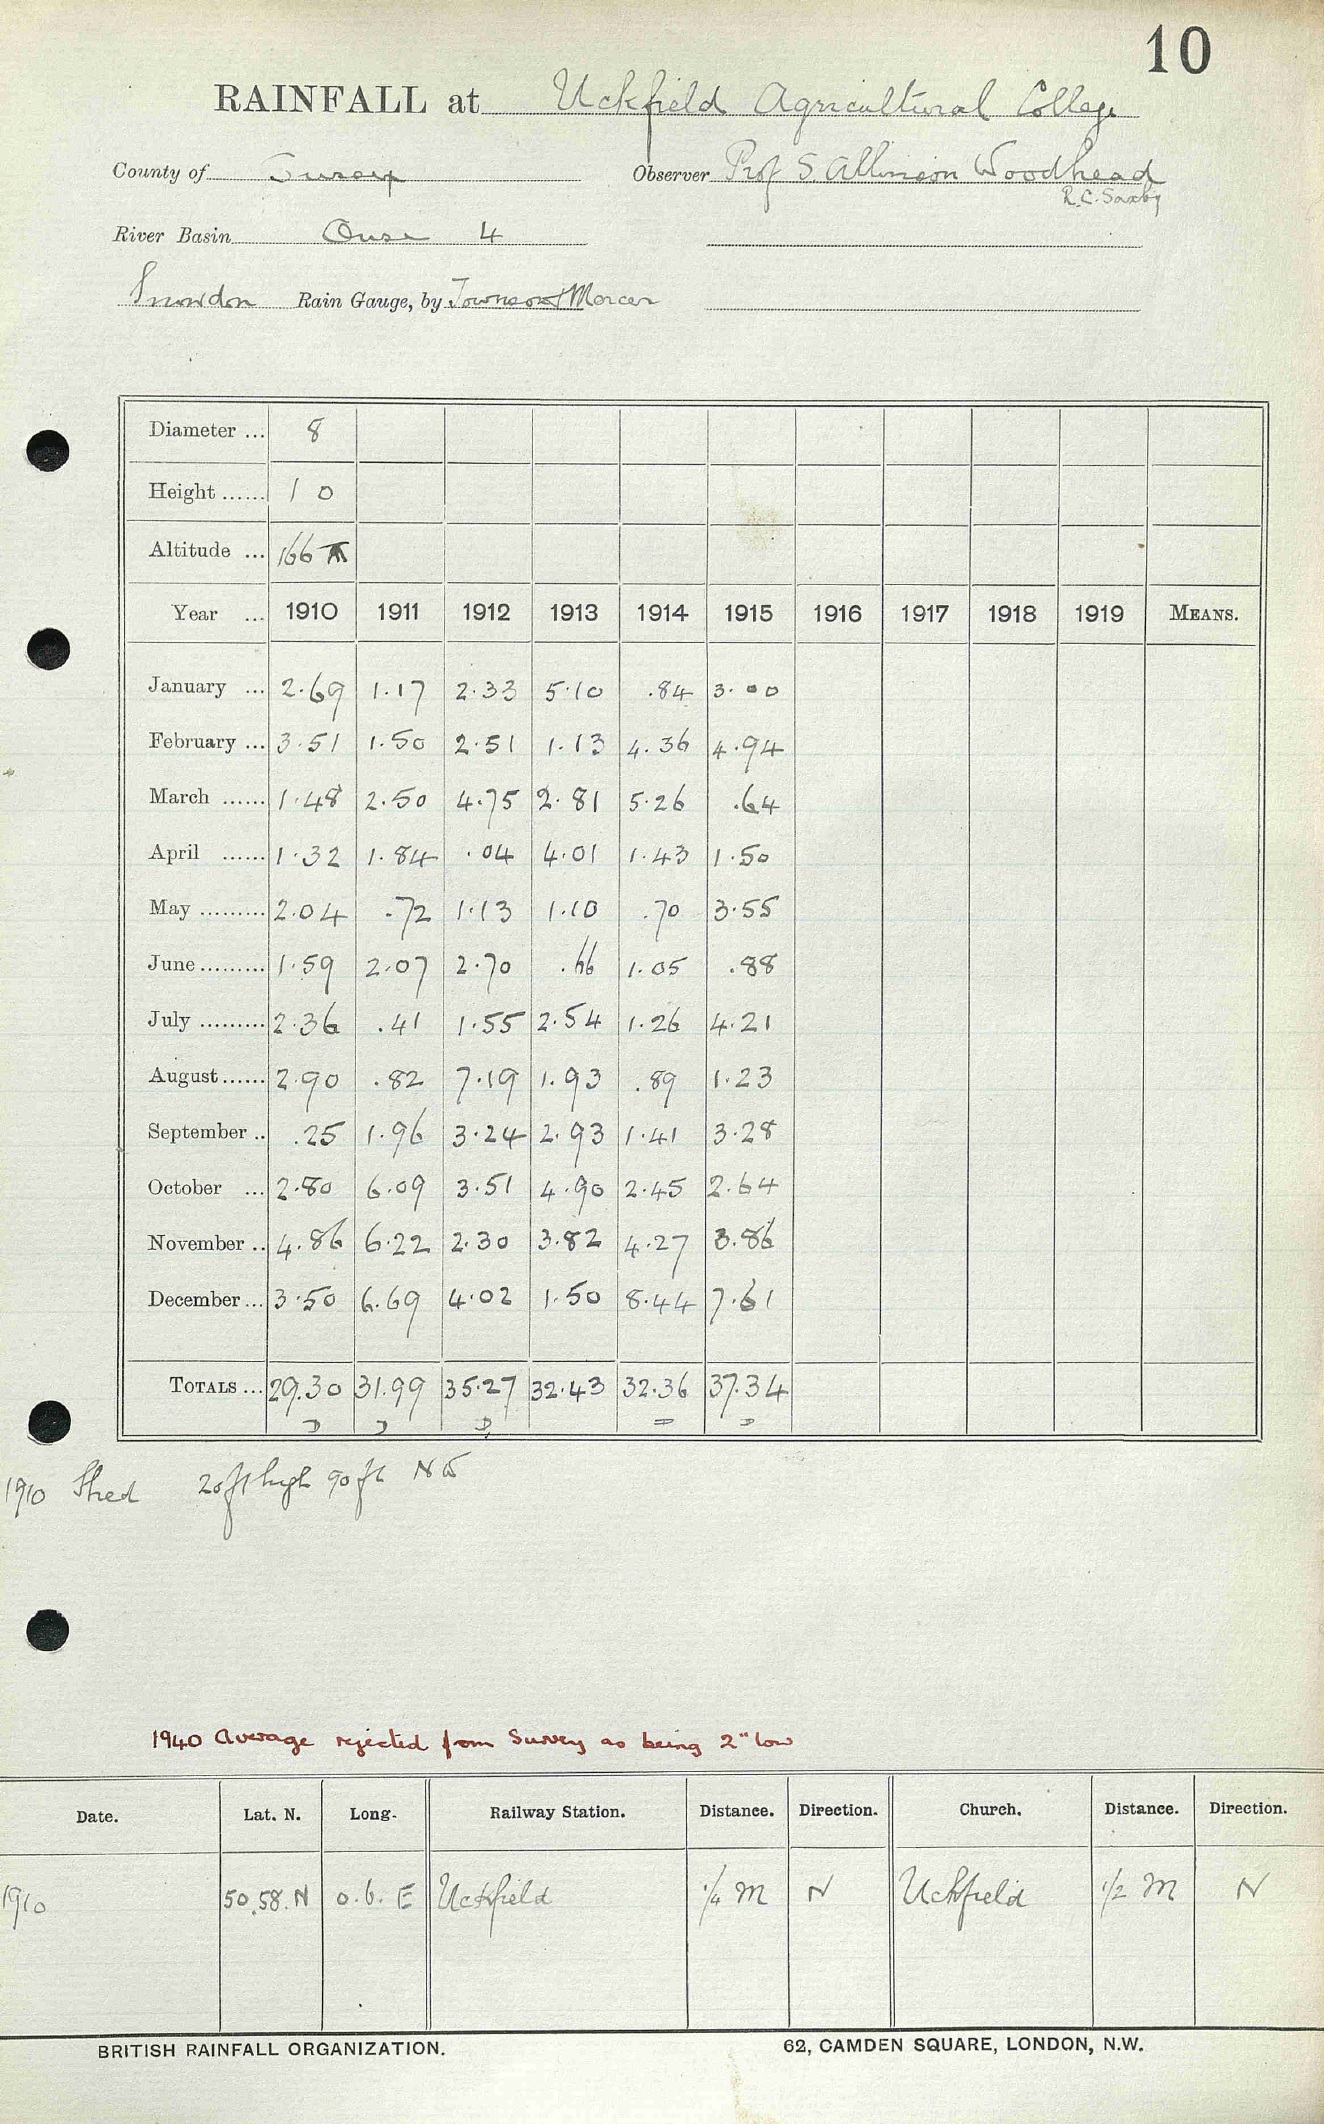 10
RAINFALL at Uckfield Agricultural College
County of Sussex Observer Prof S. Allinson Woodhead
R.C. Saxby
River Basin Ouse 4
Snowdon Rain Gauge, by Townson & Mercer
Diameter ... 8
Height ...... 1 0
Altitude ... 166
Year ... 1910 1911 1912 1913 1914 1915 1916 1917 1918 1919 MEANS.
January ... 2.69 1.17 2.33 5.10 .84 3.00
February ... 3.51 1.50 2.51 1.13 4.36 4.94
March ...... 1.48 2.50 4.75 2.81 5.26 .64
April ...... 1.32 1.84 .04 4.01 1.43 1.50
May ......... 2.04 .72 1.13 1.10 .70 3.55
June ......... 1.59 2.07 2.70 .66 1.05 .88
July ......... 2.36 .41 1.55 2.54 1.26 4.21
August ...... 2.90 .82 7.19 1.93 .89 1.23
September .. .25 1.96 3.24 2.93 1.41 3.28
October ... 2.80 6.09 3.51 4.90 2.45 2.64
November .. 4.86 6.22 2.30 3.82 4.27 3.86
December ... 3.50 6.69 4.02 1.50 8.44 7.61
TOTALS ... 29.30 31.99 35.27 32.43 32.36 37.34
1910 Shed 20 ft high 90 ft
1940 Average rejected from Survey as being 2" low
Date. Lat. N. Long. Railway Station. Distance. Direction. Church. Distance. Direction.
1910 50.58.N 0.6. E Uckfield 1/4 M N Uckfield 1/2 M N
BRITISH RAINFALL ORGANIZATION. 62, CAMDEN SQUARE, LONDON, N.W.